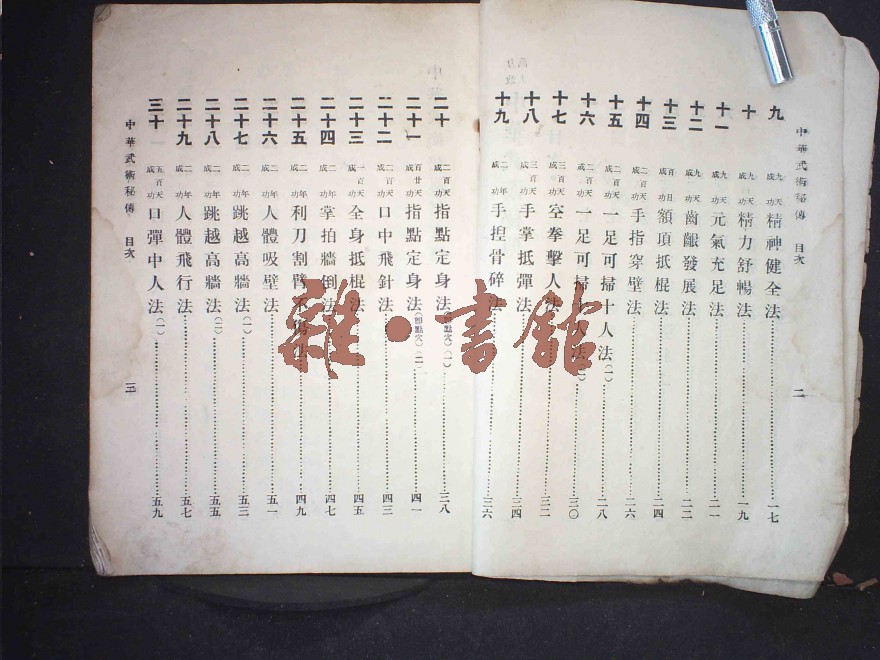 中華武術秘傳 目次 二
九 九天成功 精神健全法 一七
十 九天成功 精力舒暢法 一九
十一 九天成功 元氣充足法 二一
十二 九天成功 齒齦發展法 二二
十三 百日成功 額頂抵棍法 二四
十四 二百天成功 手指穿壁法 二六
十五 二百天成功 一足可掃十人法(一) 二八
十六 二百天成功 一足可掃十人法(二) 三〇
十七 三百天成功 空拳擊人法 三二
十八 三百天成功 手掌抵彈法 三四
十九 二年成功 手揑骨碎法 三六
二十 二百天成功 指點定身法(即點穴)(一) 三八
二十一 百廿天成功 指點定身法(即點穴)(二) 四一
二十二 二百天成功 口中飛針法 四三
二十三 一百天成功 全身抵棍法 四五
二十四 二年成功 掌拍牆倒法 四七
二十五 二年成功 利刀割臂不傷法 四九
二十六 二年成功 人體吸壁法 五一
二十七 二年成功 跳越高牆法(一) 五三
二十八 二年成功 跳越高牆法(二) 五五
二十九 二年成功 人體飛行法 五七
三十 五百天成功 口彈中人法(一) 五九
中華武術秘傳 目次 三
雜·書館